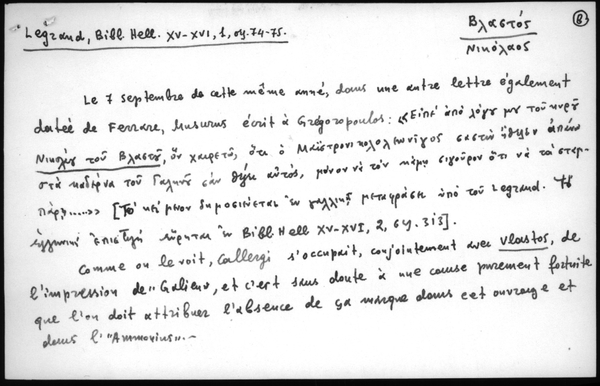 Legrand, Bibl Hell. XV-XVI, 1, σσ. 74-75.
Βλαστός
Νικόλαος
B
Le 7 septembre de cette même année, dans une autre lettre également
datée de Ferrare, Musurus écrit à Grégoropoulos: «Εἰπὲ ἀπὸ λόγου μου τοῦ κυροῦ
Νικολάου τοῦ Βλαστοῦ, ὃν χαιρετῶ, ὅτι ὁ
στὰ τοῦ Γαληνοῦ ἐὰν αὐτός, μόνον νὰ τὸν σιγοῦρον ὅτι νὰ τὰ
πάρῃ.....» [Τὸ κείμενον δημοσιεύεται ἐν γαλλικῇ μεταφράσει ὑπὸ τοῦ Legrand. Τὸ
ἑλληνικὸ εὕρηται ἐν Bibl Hell XV-XVI, 2, σσ. 313].
Comme on le voit, Callergi s'occupait, conjointement avec Vlastos, de
l'impression de "Galien", et c'est sans doute à une cause purement fortuite
que l'on doit attribuer l'absence de sa marque dans cet ouvrage et
dans l'"Ammonius".-